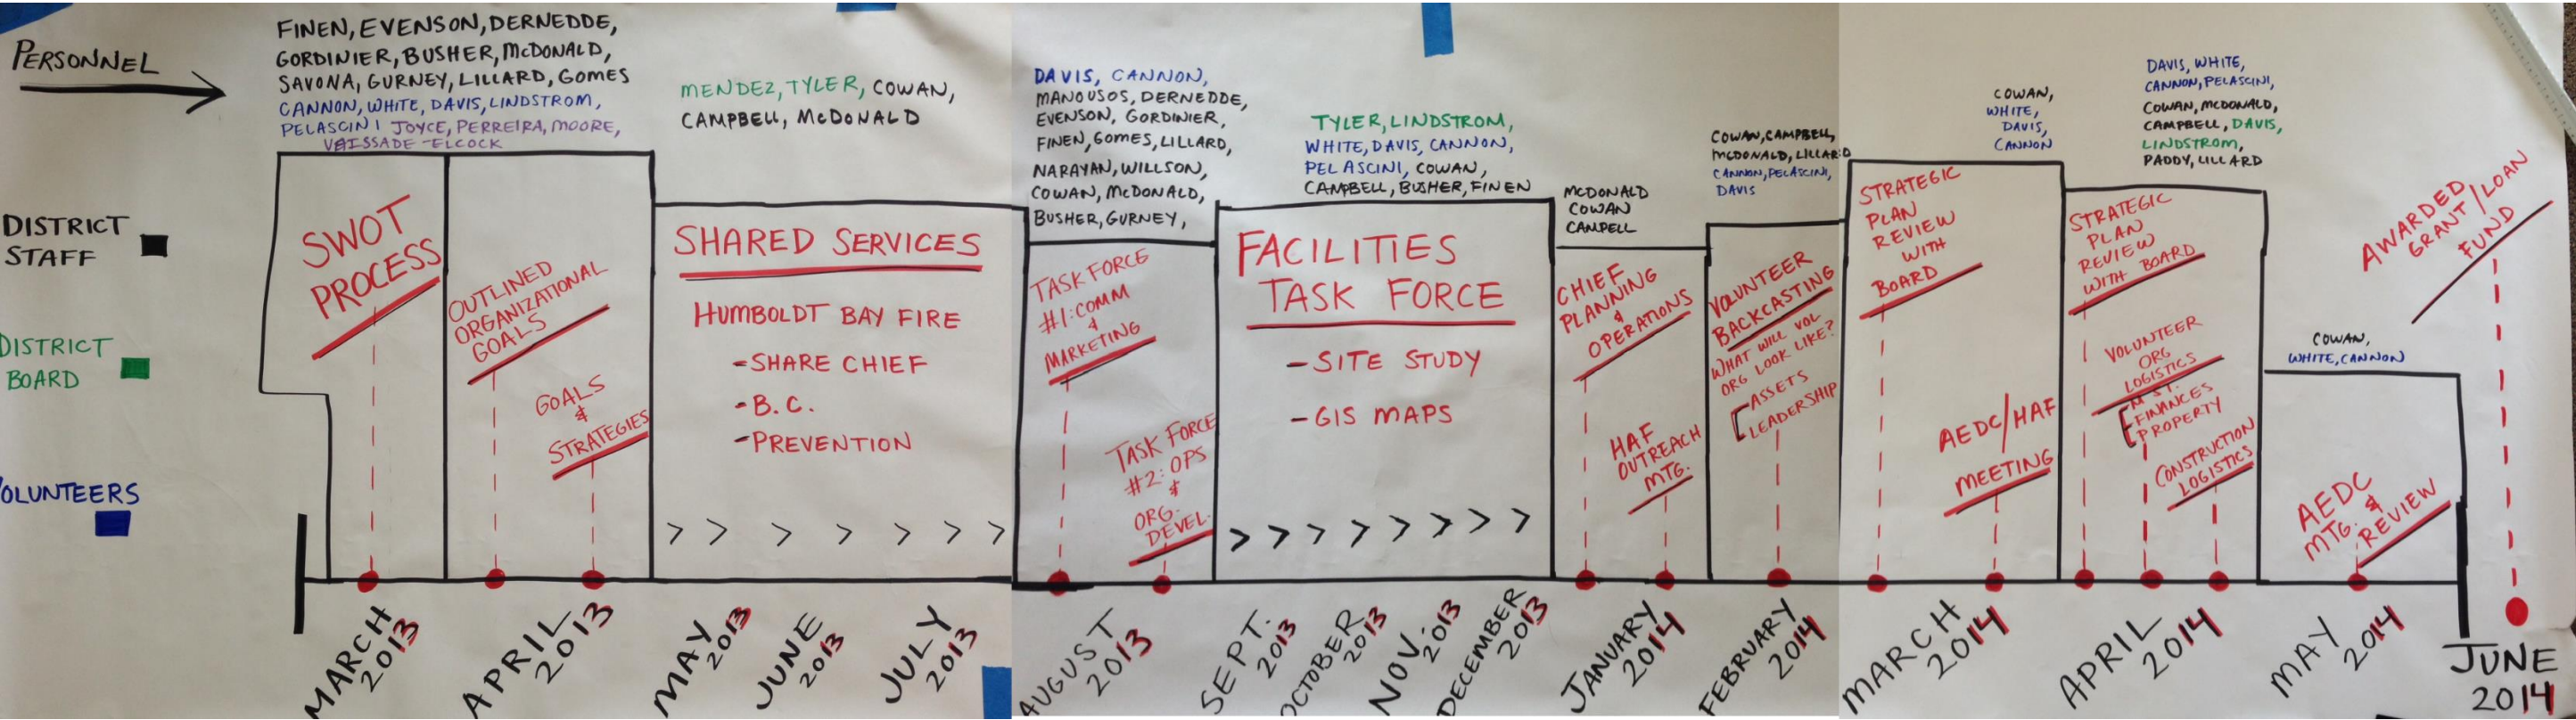 PERSONNEL
DISTRICT
STAFF
DISTRICT
BOARD
OLUNTEERS
FINEN, EVENSON, DERNEDDE,
GORDINIER, BUSHER, McDONALD,
SAVONA, GURNEY, LILLARD, GOMES
CANNON, WHITE, DAVIS, LINDSTROM,
PELASCINI JOYCE, PERREIRA, MOORE,
VAISSADE-ELCOCK
SWOT
PROCESS
OUTLINED
ORGANIZATIONAL
GOALS
GOALS
&
STRATEGIES
MENDEZ, TYLER, COWAN,
CAMPBELL, McDONALD
SHARED SERVICES
HUMBOLDT BAY FIRE
-SHARE CHIEF
-B.C.
-PREVENTION
> > > > > > >
DAVIS, CANNON,
MANOUSOS, DERNEDDE,
EVENSON, GORDINIER,
FINEN, GOMES, LILLARD,
NARAYAN, WILLSON,
COWAN, McDONALD,
BUSHER, GURNEY,
TASK FORCE
#1: COMM
&
MARKETING
TASK FORCE
#2: OPS
&
ORG.
DEVEL.
TYLER, LINDSTROM,
WHITE, DAVIS, CANNON,
PELASCINI, COWAN,
CAMPBELL, BUSHER, FINEN
FACILITIES
TASK FORCE
-SITE STUDY
-GIS MAPS
> > > > > > > >
MCDONALD
COWAN
CAMPELL
CHIEF
PLANNING
&
OPERATIONS
HAF
OUTREACH
MTG.
COWAN, CAMPBELL,
McDONALD, LILLARD
CANNON, PELASCINI,
DAVIS
VOLUNTEER
BACKCASTING
WHAT WILL VOL
ORG LOOK LIKE?
ASSETS
LEADERSHIP
COWAN,
WHITE,
DAVIS,
CANNON
STRATEGIC
PLAN
REVIEW
WITH
BOARD
AEDC/HAF
MEETING
DAVIS, WHITE,
CANNON, PELASCINI,
COWAN, McDONALD,
CAMPBELL, DAVIS,
LINDSTROM,
PADDY, LILLARD
STRATEGIC
PLAN
REVIEW
WITH BOARD
VOLUNTEER
ORG
LOGISTICS
FINANCES
PROPERTY
CONSTRUCTION
LOGISTICS
COWAN,
WHITE, CANNON
AEDC
MTG. &
REVIEW
AWARDED
GRANT/LOAN
FUND
MARCH
2013
APRIL
2013
MAY
2013
JUNE
2013
JULY
2013
AUGUST
2013
SEPT.
2013
OCTOBER
2013
NOV.
2013
DECEMBER
2013
JANUARY
2014
FEBRUARY
2014
MARCH
2014
APRIL
2014
MAY
2014
JUNE
2014